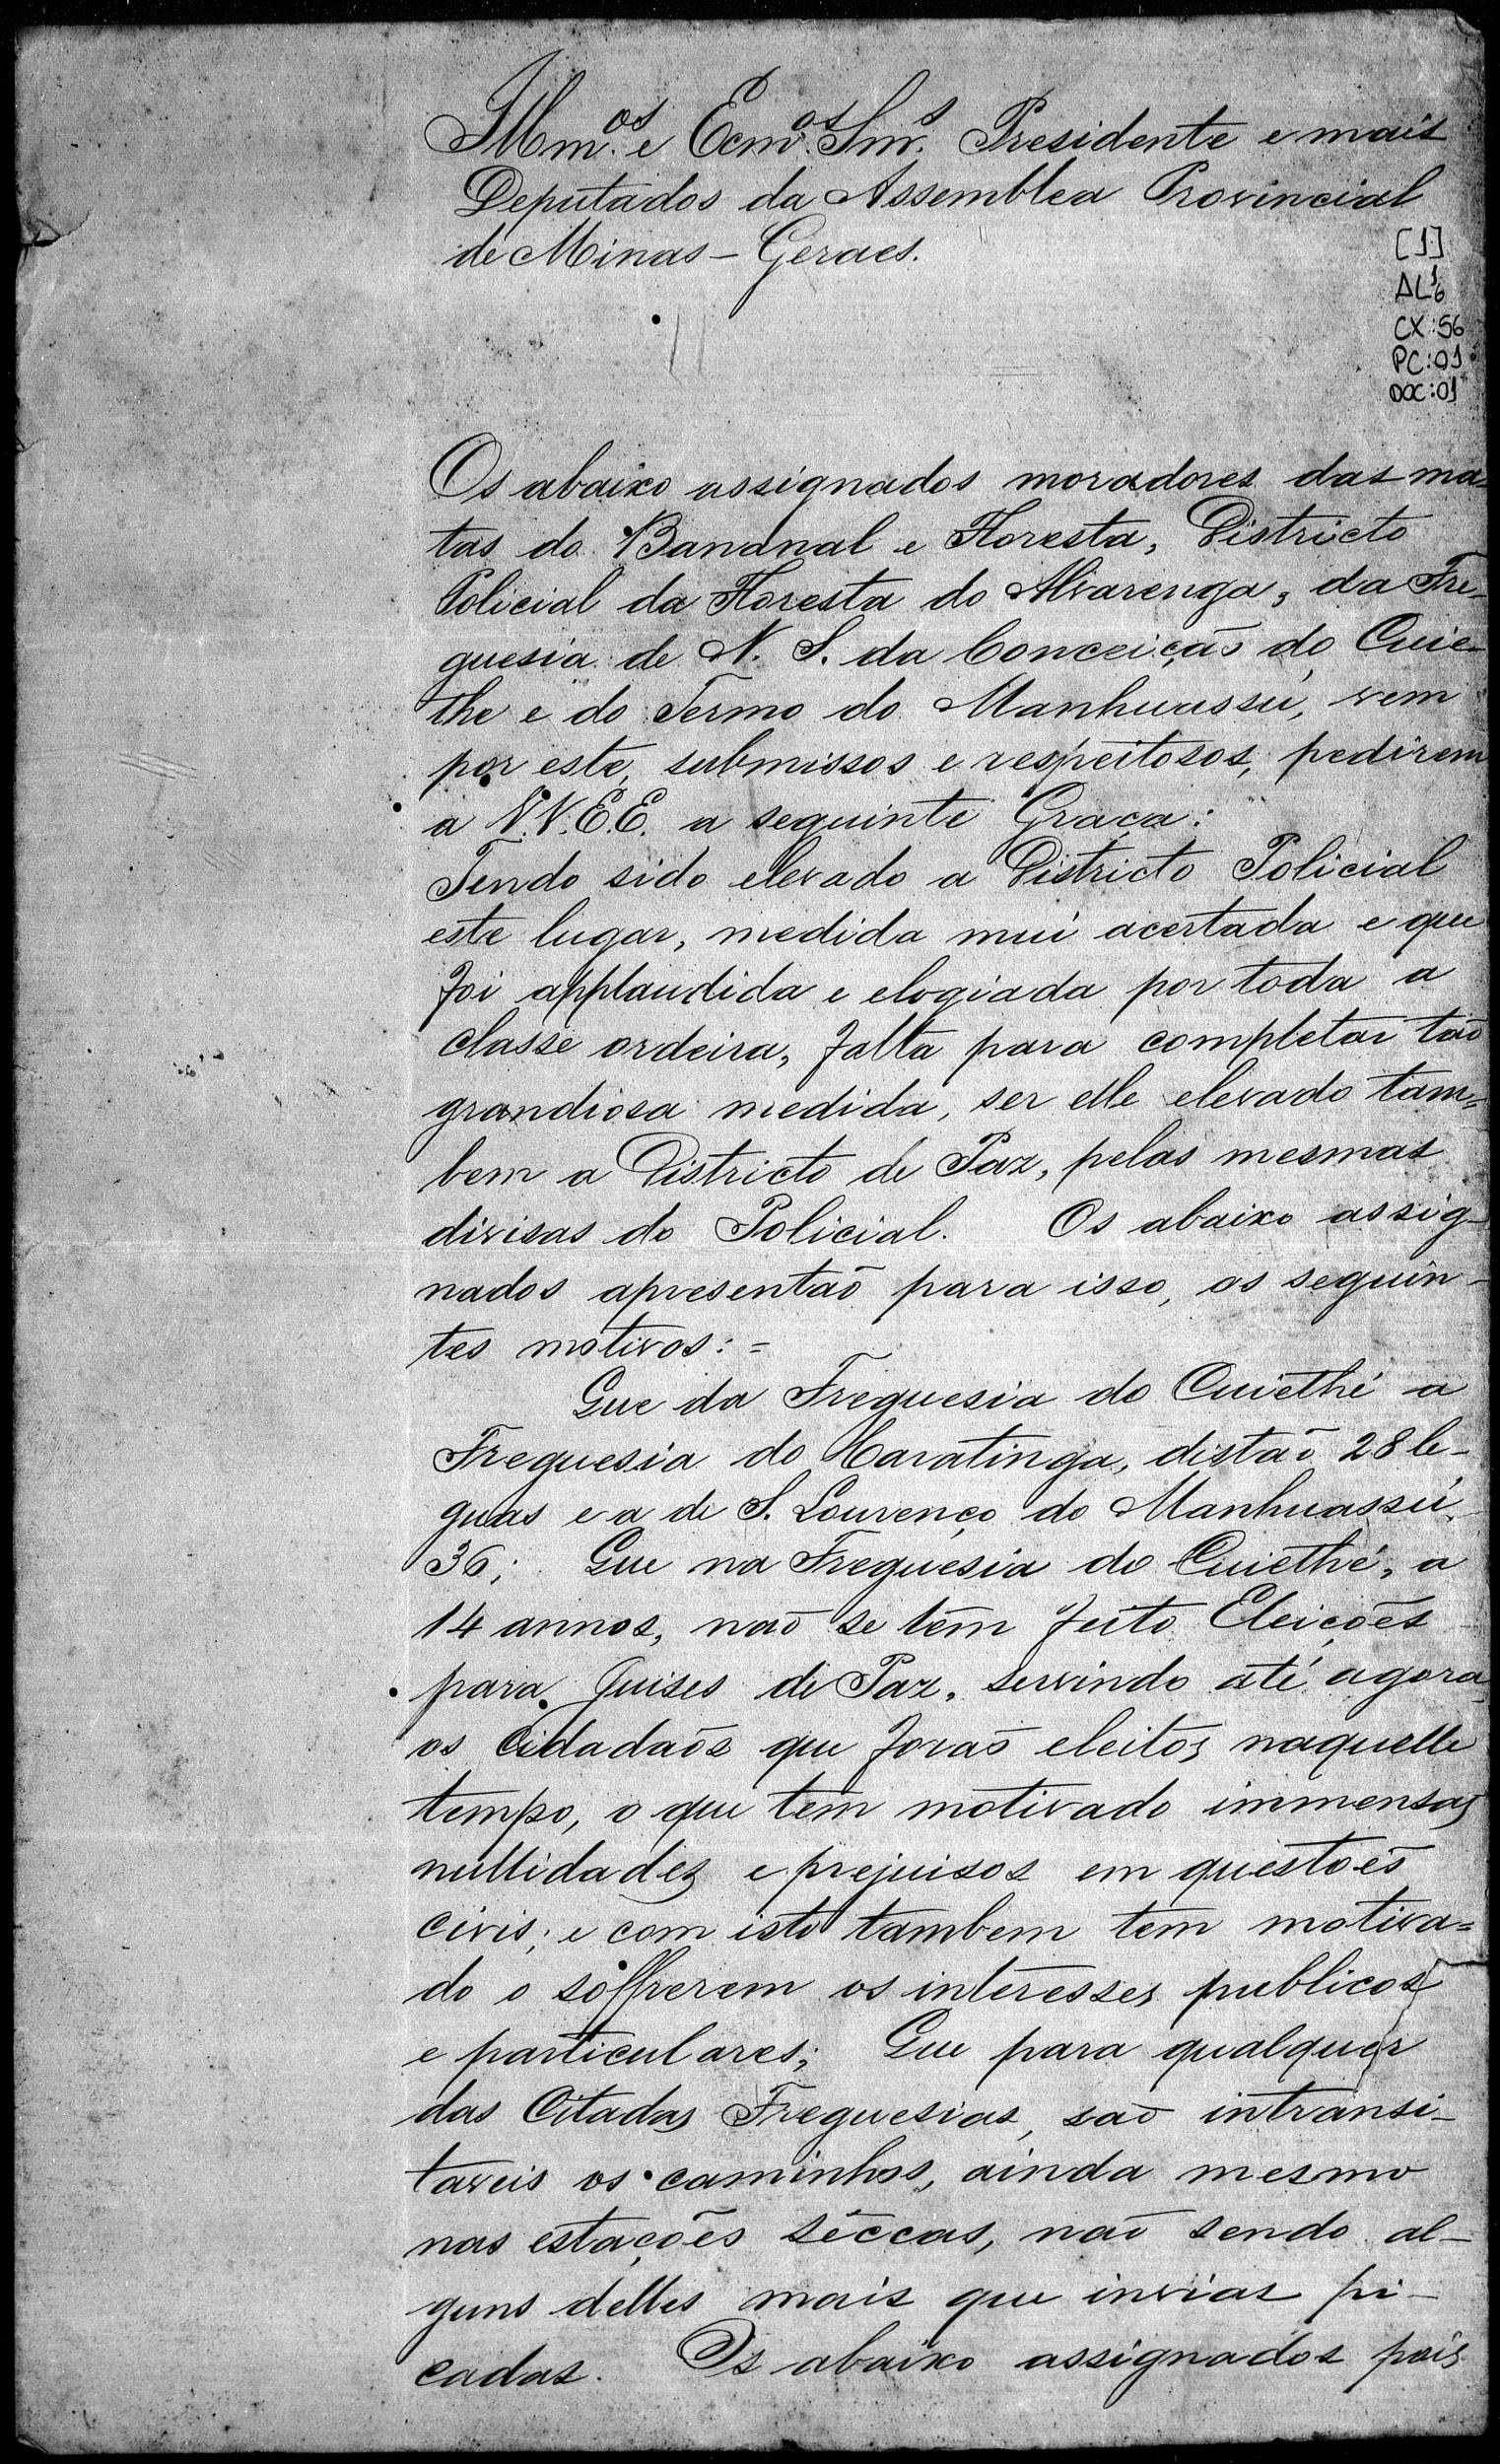 Illm.os e Ecmo.os Snr.s Presidente e mais
Deputados da Assemblea Provincial
de Minas-Geraes.
[1]
AL 1/6
CX:56
PC:01
DOC:01
Os abaixo assignados moradores das ma-
tas do Bananal e Floresta, Districto
Policial da Floresta do Alvarenga, da Fre-
guesia de N. S. da Conceição do Cuie-
the e do Termo do Manhuassú, vem
por este, submissos e respeitosos, pedirem
a V.V.E.E. a seguinte Graça:
Tendo sido elevado a Districto Policial
este lugar, medida mui acertada e que
foi applaudida e elogiada por toda a
classe ordeira, falta para completar tão
grandiosa medida, ser elle elevado tam=
bem a Districto de Paz, pelas mesmas
divisas do Policial. Os abaixo assig-
nados apresentão para isso, os seguin-
tes motivos: =
Que da Freguesia do Cuiethé a
Freguesia do Caratinga, distão 28 le-
guas e a de S. Lourenço do Manhuassú,
36; Que na Freguesia do Cuiethé, a
14 annos, não se tem feito Eleições
para Juises de Paz, servindo até agora
os Cidadãos que forão eleitos naquelle
tempo, o que tem motivado immensas
nullidades e prejuisos em questões
civis; e com isto tambem tem motiva=
do o soffrerem os interesses publicos
e particulares; Que para qualquer
das Citadas Freguesias, são intransi-
taveis os caminhos, ainda mesmo
nas estações sêccas, não sendo al-
guns delles mais que invias pi-
cadas. Os abaixo assignados pois